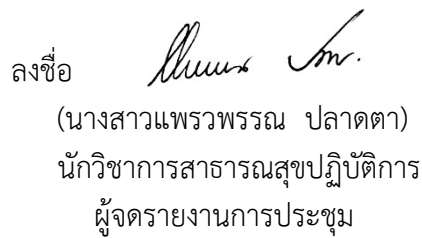 ลงชื่อ
(นางสาวแพรวพรรณ ปลาดตา)
นักวิชาการสาธารณสุขปฏิบัติการ
ผู้จดรายงานการประชุม